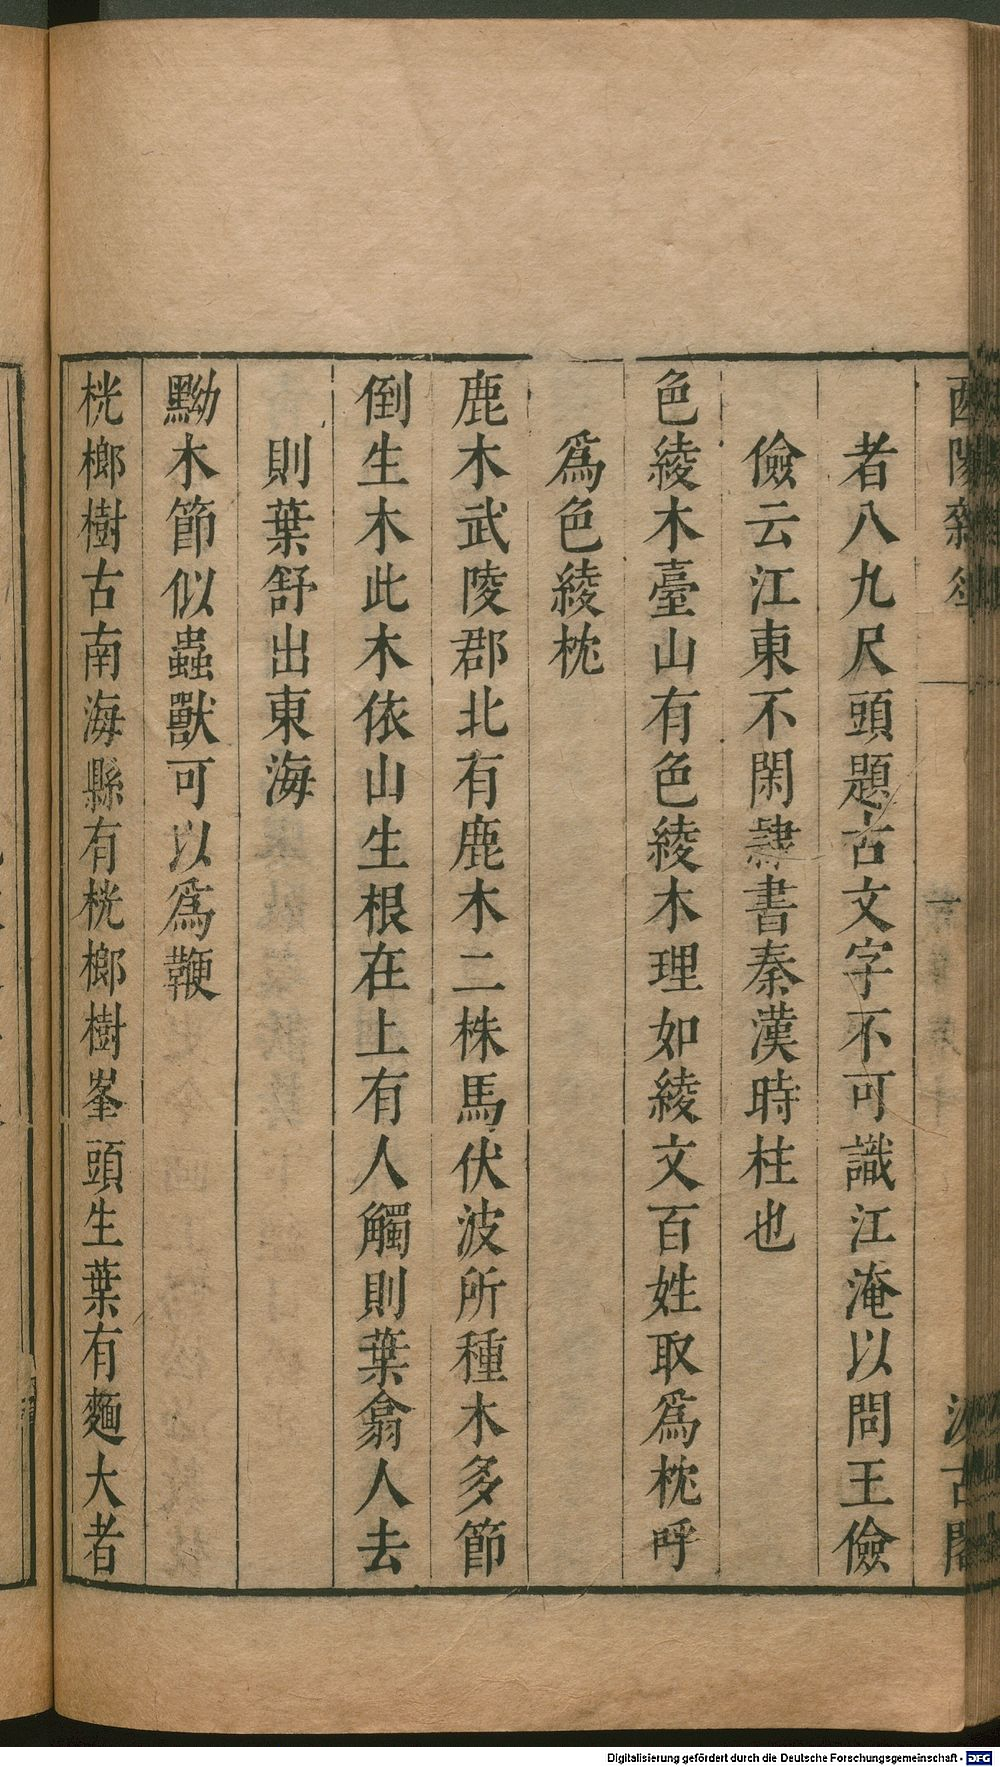 酉陽雜俎
汲古閣
者八九尺頭題古文字不可識江淹以問王儉
儉云江東不閑隷書秦漢時柱也
色綾木臺山有色綾木理如綾文百姓取爲枕呼
爲色綾枕
鹿木武陵郡北有鹿木二株馬伏波所種木多節
倒生木此木依山生根在上有人觸則葉翕人去
則葉舒出東海
黝木節似蟲獸可以爲鞭
桄榔樹古南海縣有桄榔樹峯頭生葉有麵大者
Digitalisierung gefördert durch die Deutsche Forschungsgemeinschaft - DFG